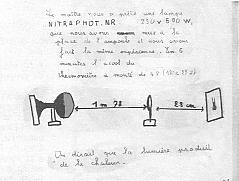 Le maître nous a prêté une lampe
NITRAPHOT. NR 250 v 500 W,
que nous avons mise à la
place de l'ampoule et nous avons
fait la même expérience. En 5
minutes l'alcool du
thermomètre a monté de 4
1 m 78
28 cm
On dirait que la lumière produit
de la chaleur.